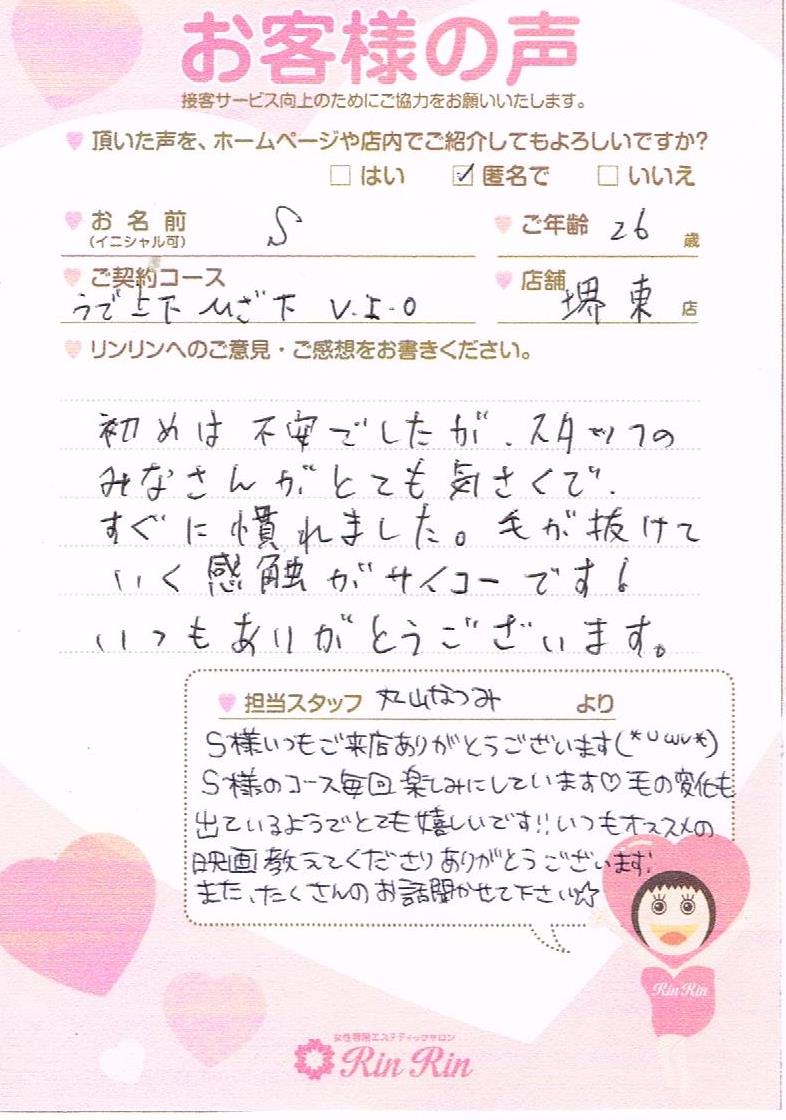 お客様の声
接客サービス向上のためにご協力をお願いいたします。
頂いた声を、ホームページや店内でご紹介してもよろしいですか?
□ はい ☑ 匿名で □ いいえ
お名前 S ご年齢 26 歳
(イニシャル可)
ご契約コース 店舗 堺東 店
うで上下 ひざ下 V.I.O
リンリンへのご意見・ご感想をお書きください。
初めは不安でしたが、スタッフの
みなさんがとても気さくで、
すぐに慣れました。毛が抜けて
いく感触がサイコーです!
いつもありがとうございます。
担当スタッフ 丸山なつみ より
S様いつもご来店ありがとうございます(*∪ω∪*)
S様のコース毎回楽しみにしています♡毛の変化も
出ているようでとても嬉しいです!!いつもオススメの
映画教えてくださりありがとうございます!
また、たくさんのお話聞かせて下さい☆
Rin Rin
女性専用エステティックサロン
Rin Rin